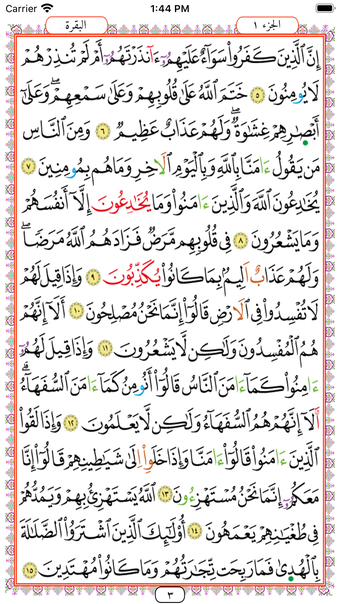 Carrier 1:44 PM
البقرة الجزء ١
إِنَّ اَلَذِينَ كَفَرُواْ سَوَآءٌ عَلَيْهِمُۥٓ ءَآنذَرْتَهُمُۥٓ أَمْ لَمْ تُنذِرْهُمْ
لَا يُومِنُونَ ٥ خَتَمَ اَللَّهُ عَلَىٰ قُلُوبِهِمْ وَعَلَىٰ سَمْعِهِمْ وَعَلَىٰٓ
أَبْصَٰرِهِمْ غِشَٰوَةٌ وَلَهُمْ عَذَابٌ عَظِيمٌ ٦ وَمِنَ اَلنَّاسِ
مَنْ يَقُولُ ءَامَنَّا بِاللَّهِ وَبِالْيَوْمِ اِلَاخِرِ وَمَا هُم بِمُومِنِينَ ٧
يُخَٰدِعُونَ اَللَّهَ وَالَّذِينَ ءَامَنُواْ وَمَا يُخَٰدِعُونَ إِلَّآ أَنفُسَهُمْ
وَمَا يَشْعُرُونَ ٨ فِي قُلُوبِهِم مَّرَضٌ فَزَادَهُمُ اُللَّهُ مَرَضاً
وَلَهُمْ عَذَابٌ اَلِيمٌ بِمَا كَانُواْ يُكَذِّبُونَ ٩ وَإِذَا قِيلَ لَهُمْ
لَا تُفْسِدُواْ فِي اِلَارْضِ قَالُوٓاْ إِنَّمَا نَحْنُ مُصْلِحُونَ ١٠ أَلَآ إِنَّهُمْ
هُمُ اُلْمُفْسِدُونَ وَلَٰكِن لَّا يَشْعُرُونَ ١١ وَإِذَا قِيلَ لَهُمُۥٓ
ءَامِنُواْ كَمَآ ءَامَنَ اَلنَّاسُ قَالُوٓاْ أَنُومِنُ كَمَآ ءَامَنَ اَلسُّفَهَآءُ
أَلَآ إِنَّهُمْ هُمُ اُلسُّفَهَآءُ وَلَٰكِن لَّا يَعْلَمُونَ ١٢ وَإِذَا لَقُواْ
اُلَّذِينَ ءَامَنُواْ قَالُوٓاْ ءَامَنَّا وَإِذَا خَلَوِاْ اِلَىٰ شَيَٰطِينِهِمْ قَالُوٓاْ إِنَّا
مَعَكُمُۥٓ إِنَّمَا نَحْنُ مُسْتَهْزِءُونَ ١٣ اَللَّهُ يَسْتَهْزِئُ بِهِمْ وَيَمُدُّهُمْ
فِي طُغْيَٰنِهِمْ يَعْمَهُونَ ١٤ أُوْلَٰٓئِكَ اَلَّذِينَ اَشْتَرَوُاْ اُلضَّلَٰلَةَ
بِالْهُدَىٰ فَمَا رَبِحَت تِّجَٰرَتُهُمْ وَمَا كَانُواْ مُهْتَدِينَ ١٥
٣